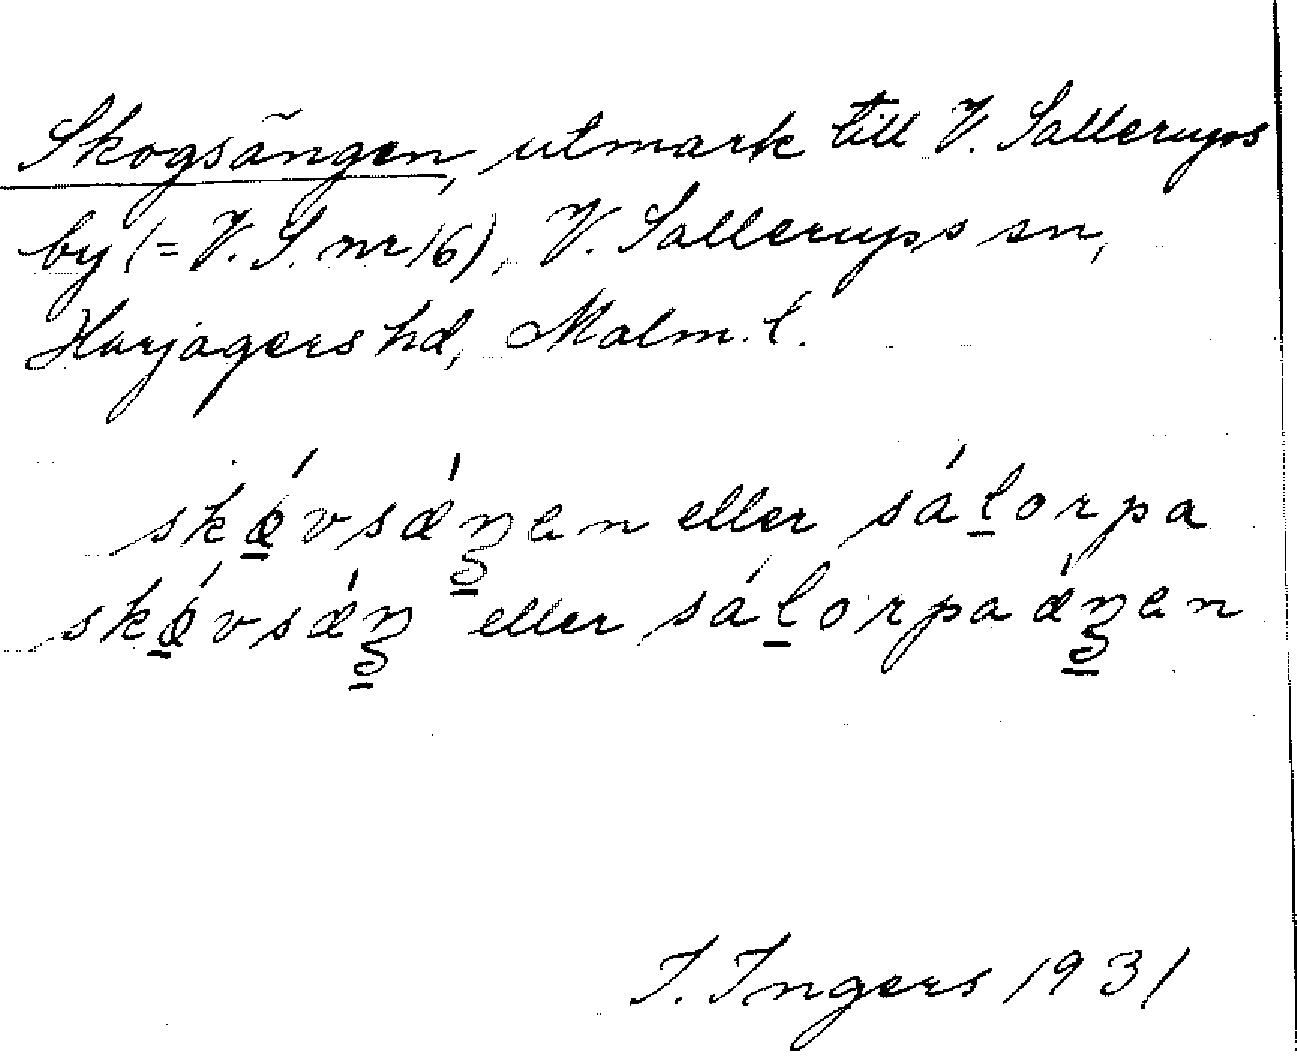 Skogsängen, utmark till V. Sallerups
by (= V. S. nr 16), V. Sallerups sn,
Harjagers hd, Malm. l.
skǿvsæŋen eller sálorpa
skǿvsæŋ eller sálorpaæŋen
I. Ingers 1931